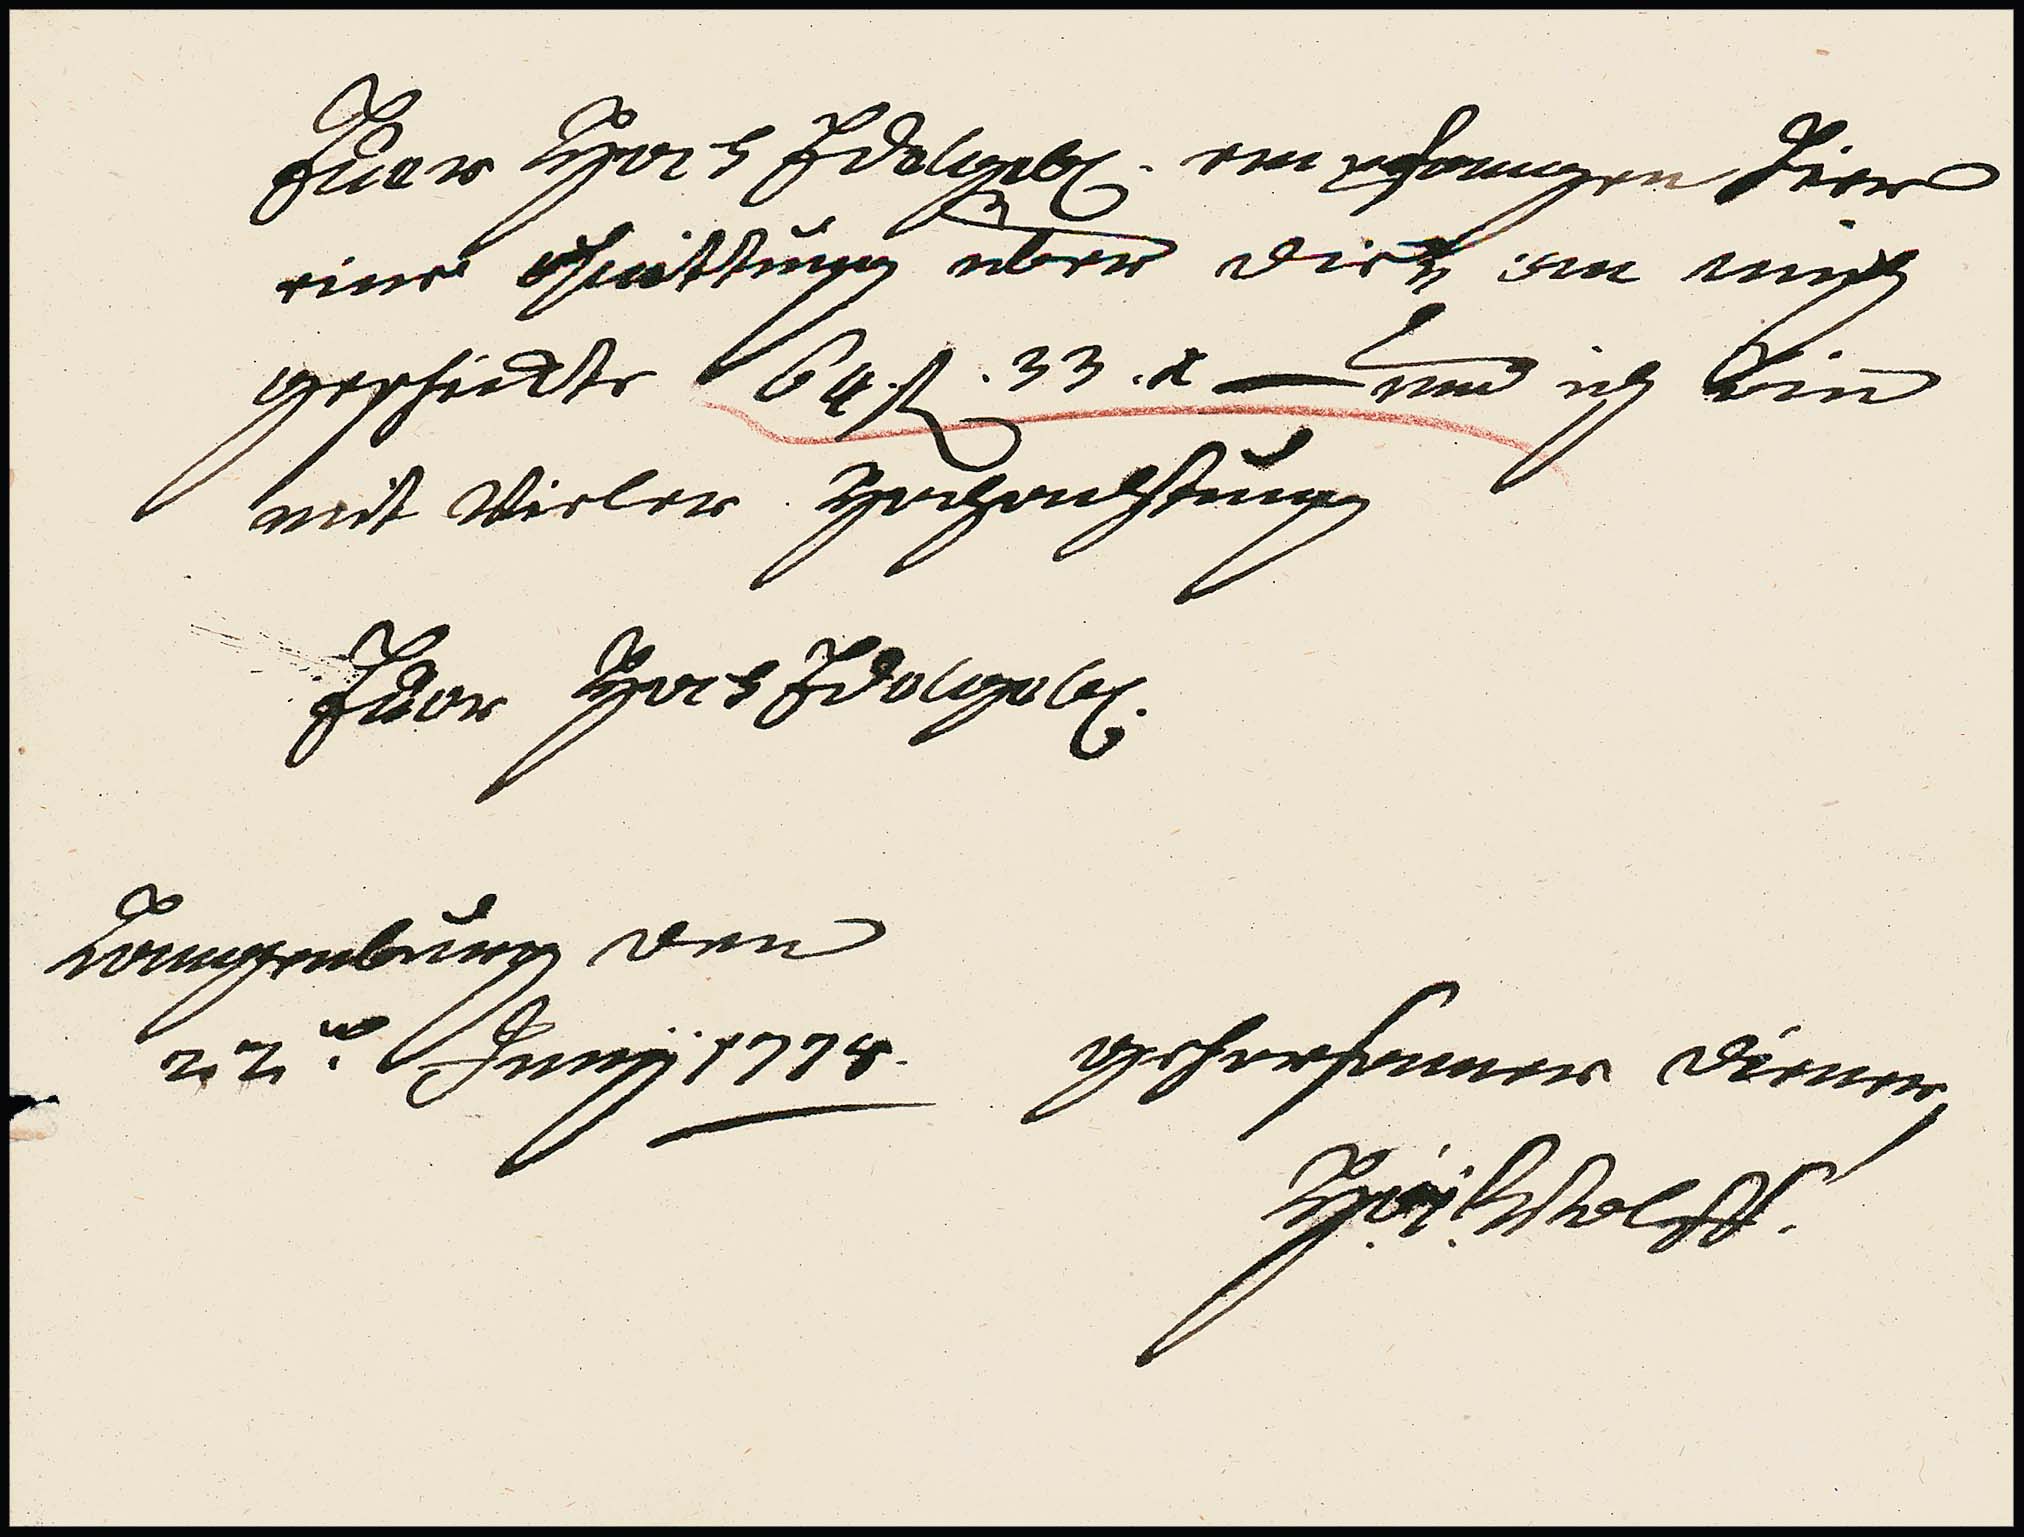 Euer Hoch Edelgeb. empfangen hier
eine Quittung uber die an mich
geschickte 64 fl. 33. x — und ich bin
mit Vieler Hochachtung
Euer Hoch Edelgeb.
Langenburg den
22. Junij 1778.
gehorsamer diener